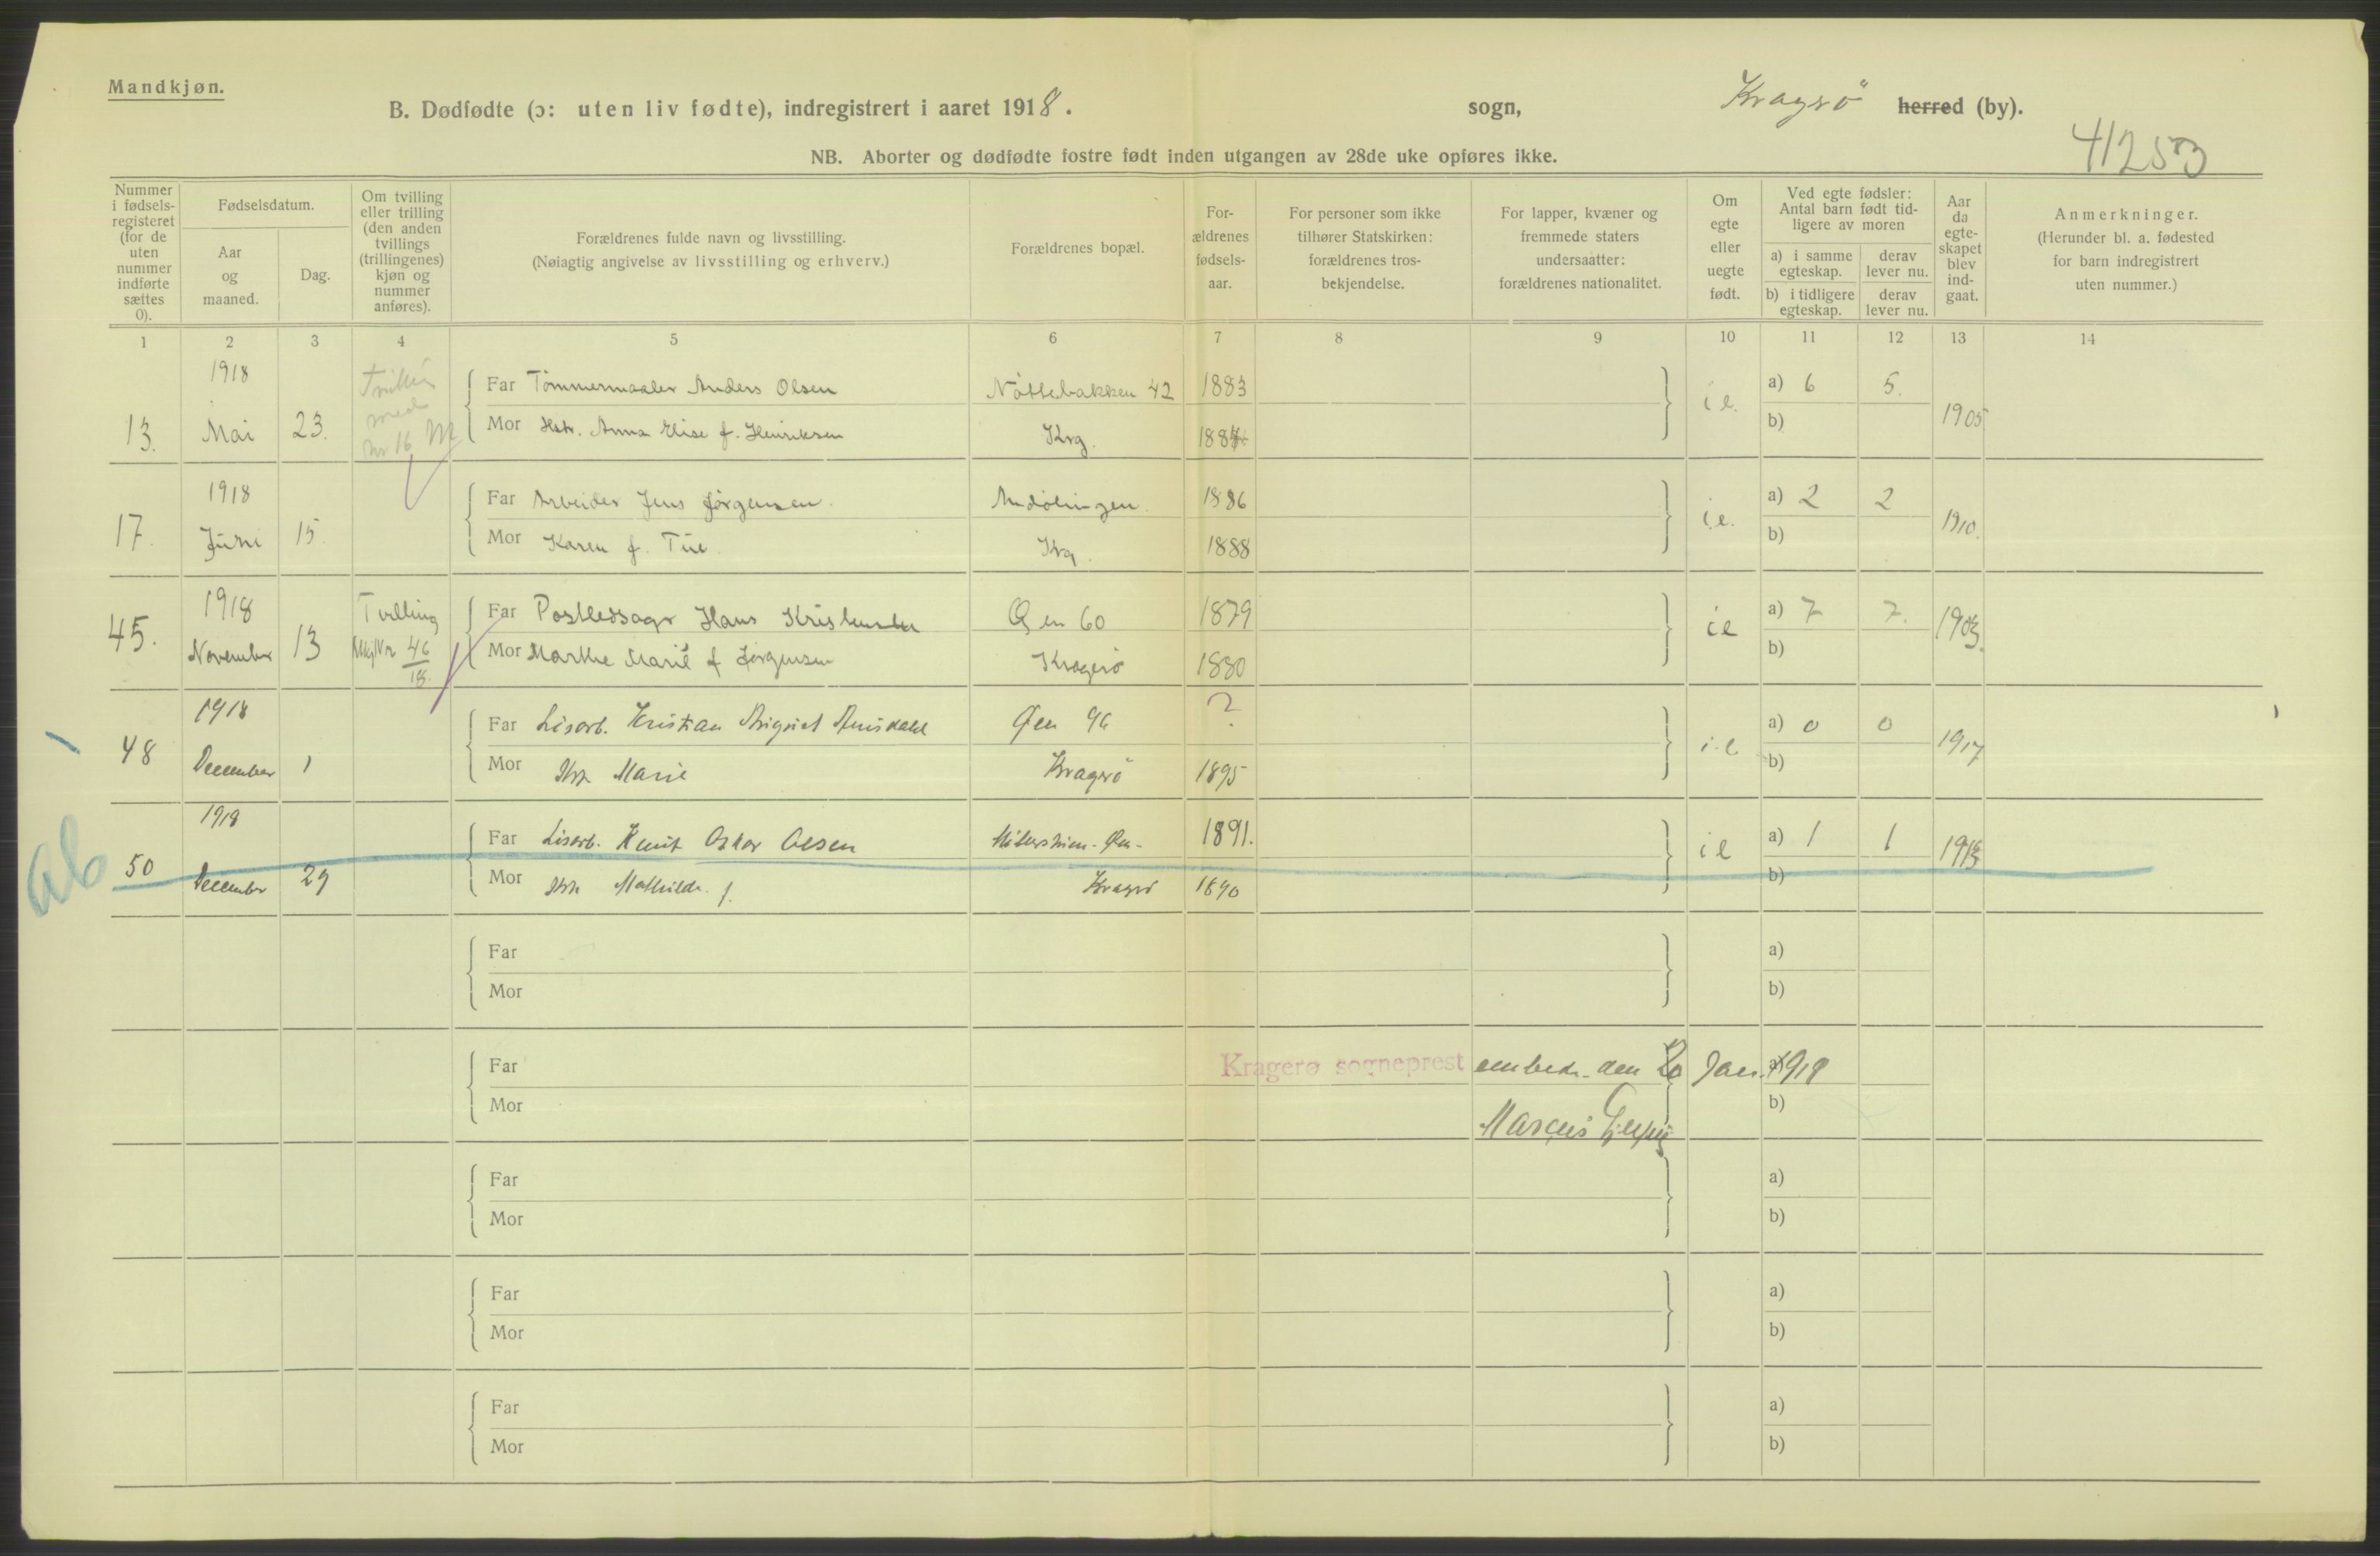 Mandkjøn.
B. Dødfødte (ɔ: uten liv fødte), indregistrert i aaret 1918.
sogn,
Kragerö herred (by).
41253
NB. Aborter og dødfødte fostre født inden utgangen av 28de uke opføres ikke.
Nummer i fødselsregisteret (for de uten nummer indførte sættes 0).
Fødselsdatum.
Aar og maaned.
Dag.
Om tvilling eller trilling (den anden tvillings (trillingenes) kjøn og nummer anføres).
Forældrenes fulde navn og livsstilling.
(Nøiagtig angivelse av livsstilling og erhverv.)
Forældrenes bopæl.
Forældrenes fødselsaar.
For personer som ikke tilhører Statskirken: forældrenes trosbekjendelse.
For lapper, kvæner og fremmede staters undersaatter: forældrenes nationalitet.
Om egte eller uegte født.
Ved egte fødsler: Antal barn født tidligere av moren
a) i samme egteskap.
derav lever nu.
b) i tidligere egteskap.
derav lever nu.
Aar da egteskapet blev indgaat.
Anmerkninger.
(Herunder bl. a. fødested for barn indregistrert uten nummer.)
1 2 3 4 5 6 7 8 9 10 11 12 13 14
1918
13. Mai 23. med Nr 16 M
Far Tömmermaaler Anders Olsen Nöttebakken 42 1883 i e. a) 6 5. 1905
Mor Hstr. Anna Elise f. Henriksen Krg. b)
1918
17. Juni 15.
Far Arbeider Jens Jørgensen. 1886 i.e. a) 2 2 1910.
Mor Karen f. Krg. 1888 b)
1918
45. November 13 Tvilling Nr 46/18.
Far Hans Øen 60 1879 ie a) 7 7. 1903.
Mor Marthe Marie f Jørgensen Kragerø 1880 b)
1918
48 December 1
Far Lisarb. Kristian Øen 96 ? i.e a) 0 0 1917
Mor Hstr Marie Kragerö 1895 b)
1918
50 December 29
Far Lisarb. Knut Oskar Olsen 1891. ie a) 1 1 1913
Mor Hstr Mathilde f. Kragerø 1890 b)
ab
Far a)
Mor b)
Far Kragerø sogneprest embede den 20 Jan. 1919 a)
Mor Marcus b)
Far a)
Mor b)
Far a)
Mor b)
Far a)
Mor b)